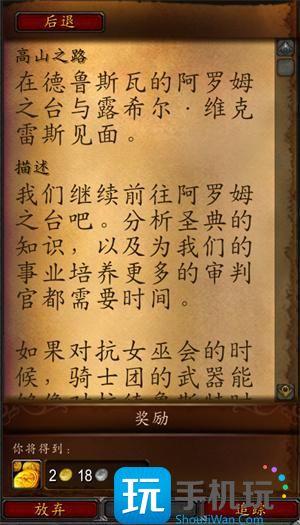 后退
高山之路
在德鲁斯瓦的阿罗姆
之台与露希尔·维克
雷斯见面。
描述
我们继续前往阿罗姆
之台吧。分析圣典的
知识，以及为我们的
事业培养更多的审判
官都需要时间。
如果对抗女巫会的时
候，骑士团的武器能
奖励
你将得到：
2 18
放弃
追踪
玩手机玩
ShouJiWan.Com